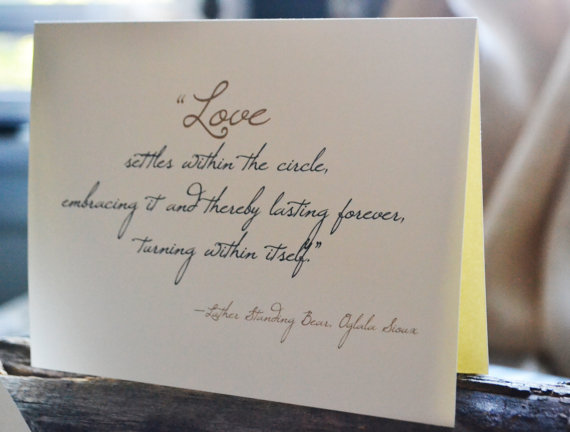 “Love
settles within the circle,
embracing it and thereby lasting forever,
turning within itself.”
—Luther Standing Bear, Oglala Sioux